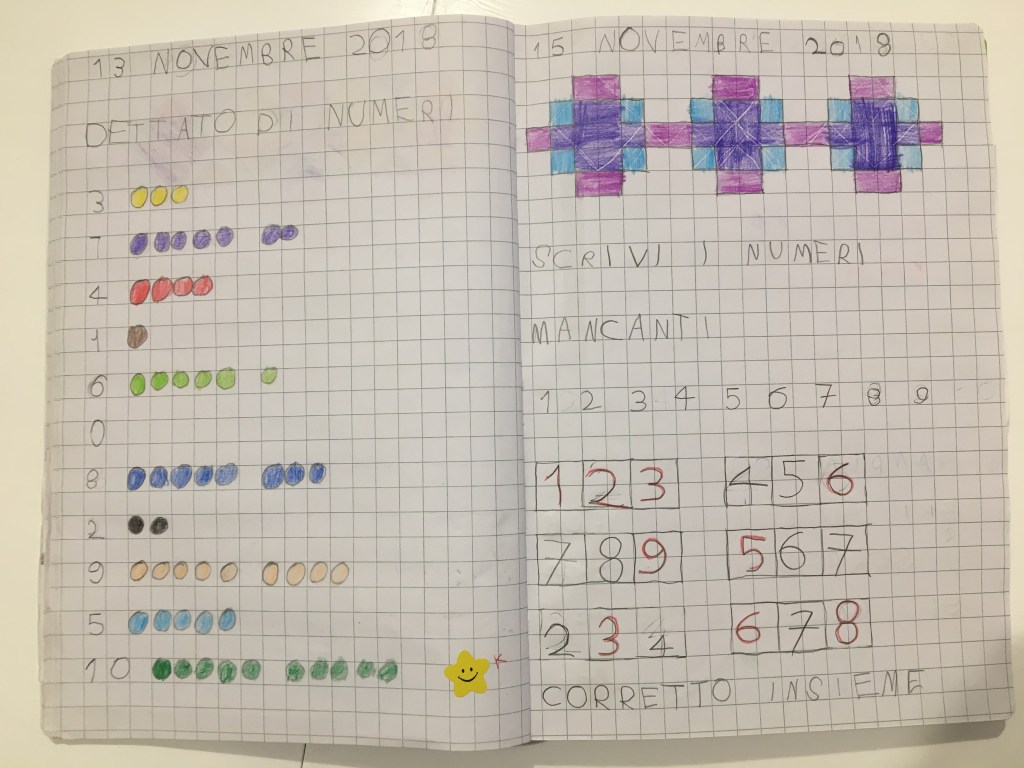 13 NOVEMBRE 2018
DETTATO DI NUMERI
3
7
4
1
6
0
8
2
9
5
10
K
15 NOVEMBRE 2018
SCRIVI I NUMERI
MANCANTI
1 2 3 4 5 6 7 8 9
1 2 3 4 5 6
7 8 9 5 6 7
2 3 4 6 7 8
CORRETTO INSIEME